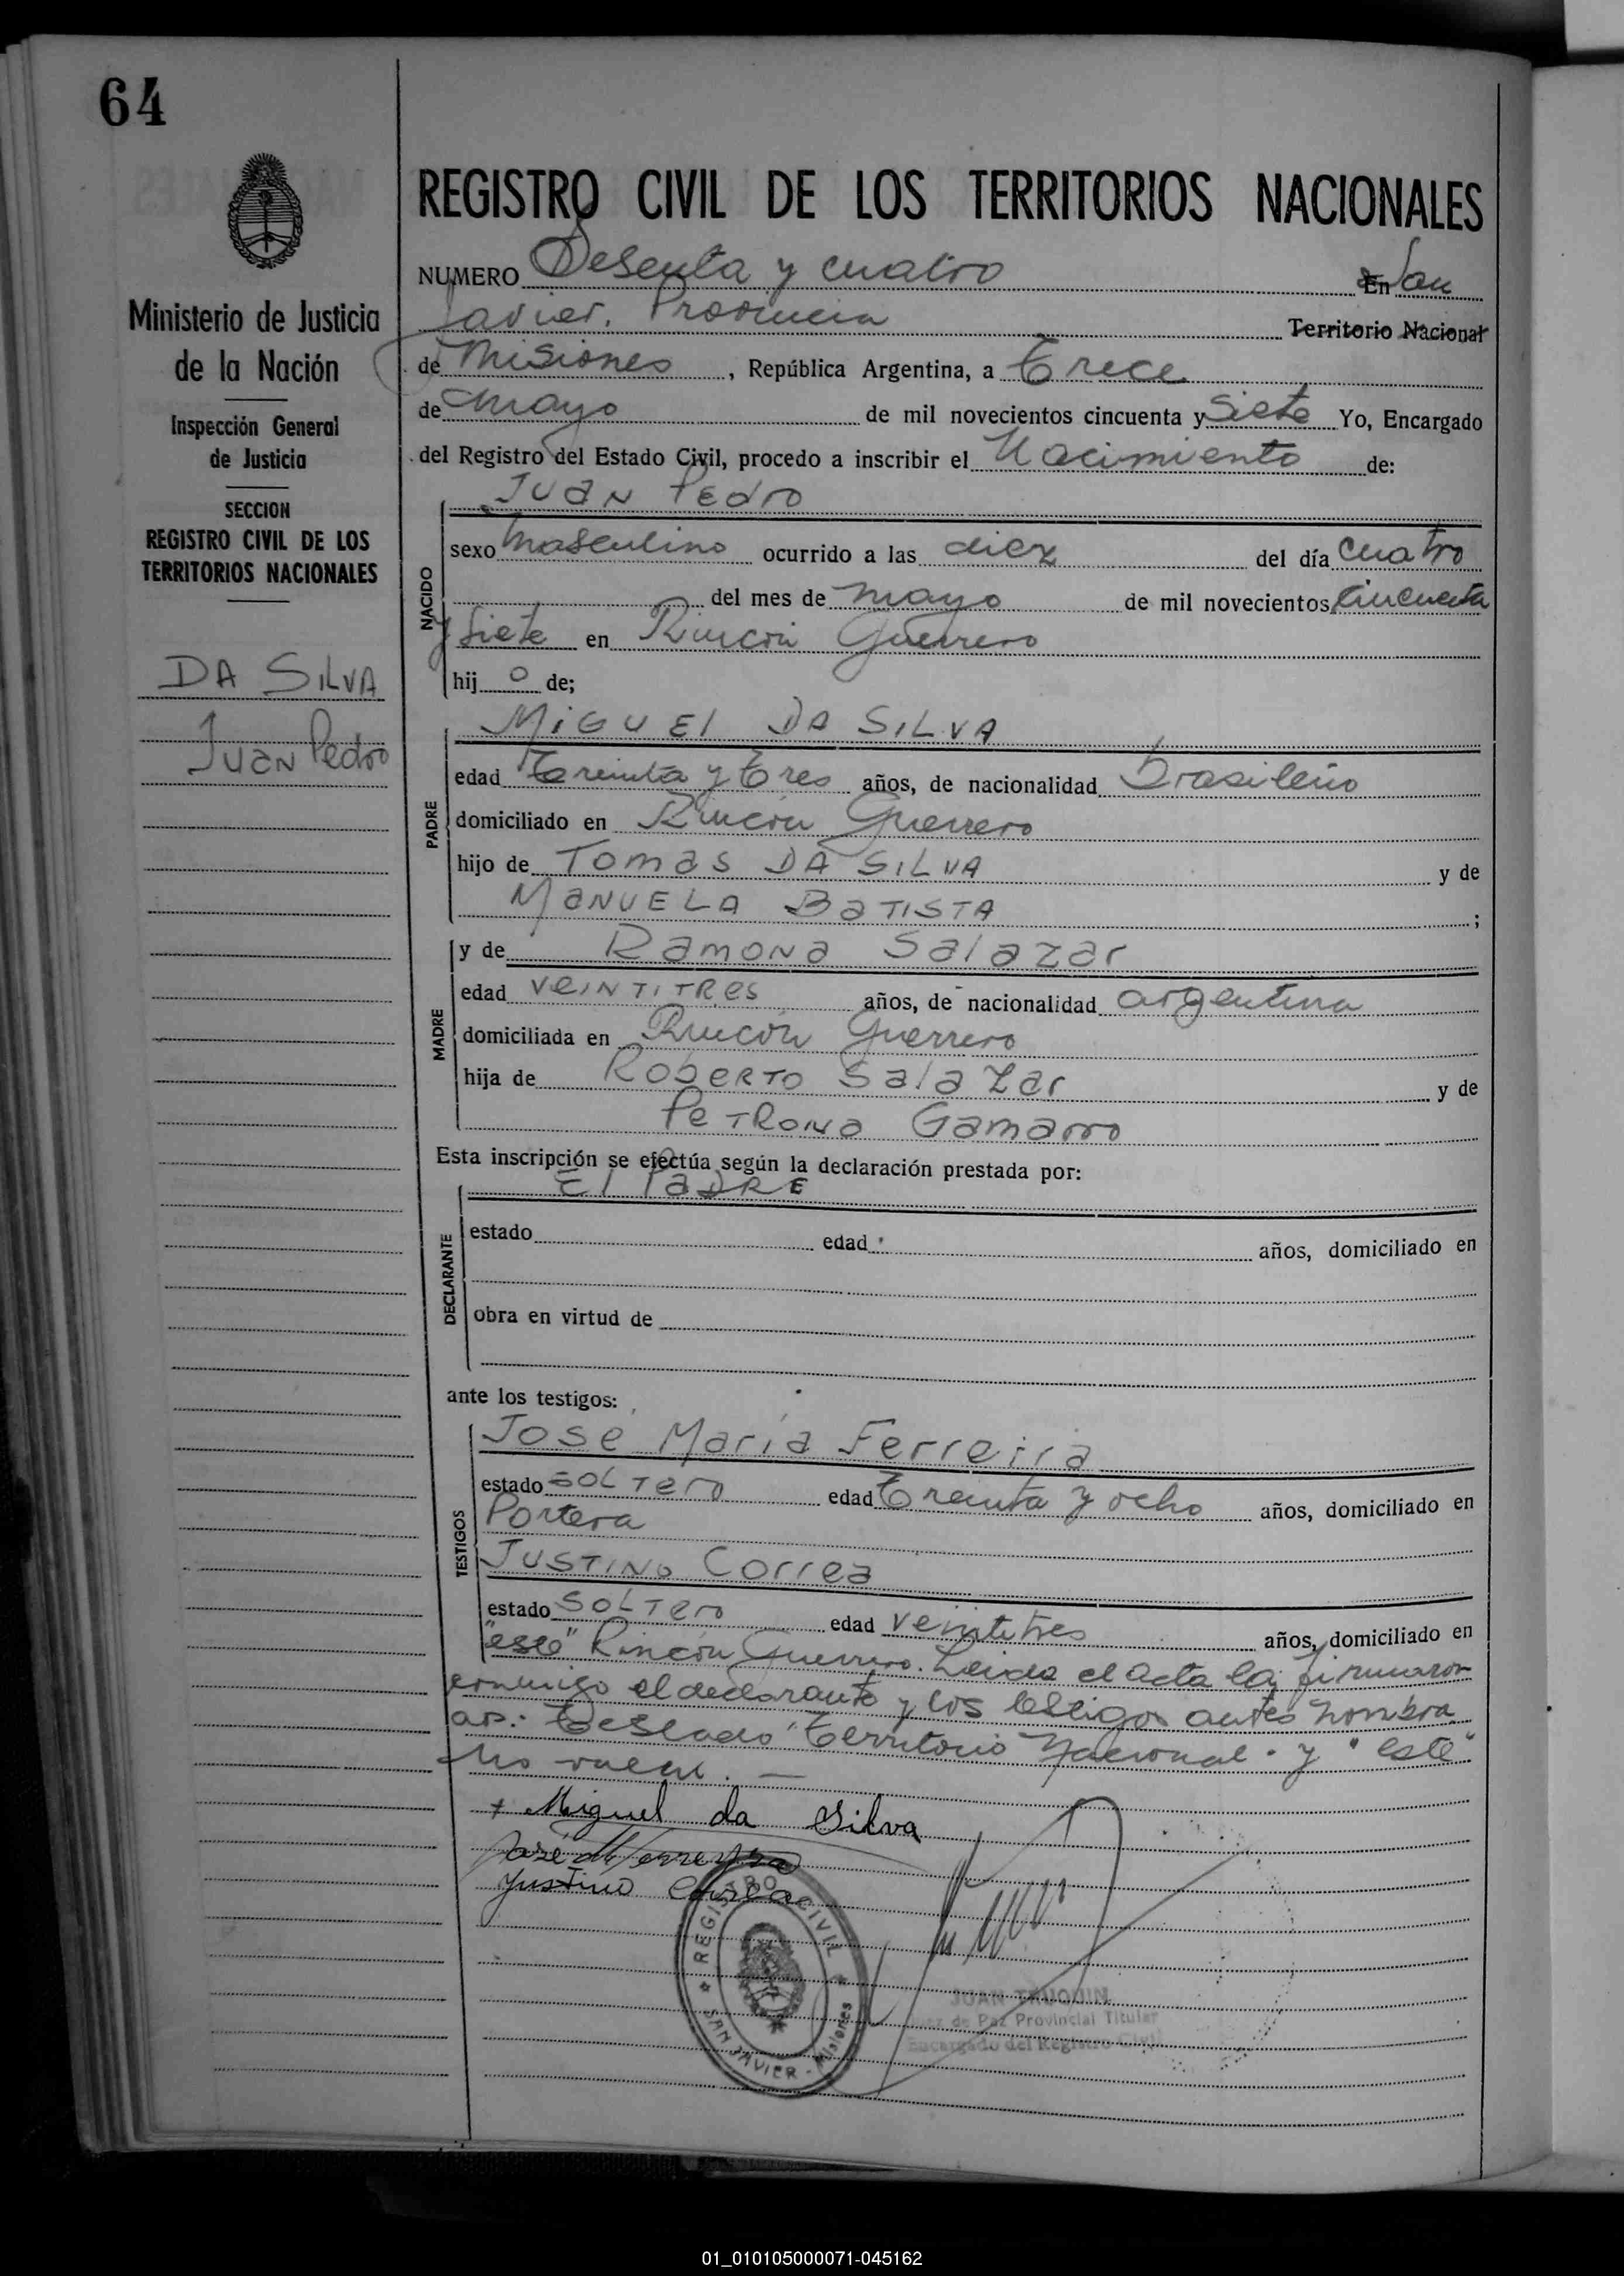 64
REGISTRO CIVIL DE LOS TERRITORIOS NACIONALES
NUMERO Sesenta y cuatro En San
Javier, Provincia Territorio Nacional
de Misiones, República Argentina, a Trece
de Mayo de mil novecientos cincuenta y Siete Yo, Encargado
del Registro del Estado Civil, procedo a inscribir el Nacimiento de:
Juan Pedro
NACIDO
sexo Masculino ocurrido a las diez del día cuatro
del mes de mayo de mil novecientos cincuenta
y Siete en Rincón Guerrero
hij o de;
MIGUEl DA SILVA
PADRE
edad Treinta y Tres años, de nacionalidad brasileño
domiciliado en Rincón Guerrero
hijo de Tomas DA SILVA y de
MANUELA BATISTA ;
y de Ramona Salazar
MADRE
edad VEINTITRES años, de nacionalidad argentina
domiciliada en Rincón Guerrero
hija de ROBERTO Salazar y de
PETRONA Gamarro
Esta inscripción se efectúa según la declaración prestada por:
El PADRE
DECLARANTE
estado edad años, domiciliado en
obra en virtud de
ante los testigos:
Jose Maria Ferreira
TESTIGOS
estado SOLTERO edad Treinta y ocho años, domiciliado en
Portera
JUSTINO Correa
estado SOLTERO edad veintitres años, domiciliado en
"este" Rincón Guerrero. Leida el acta la firmaron
conmigo el declarante y los testigos antes nombra
dos.- Testado "Territorio Nacional" y "este"
No valen. —
+ Miguel da Silva
José M Ferreyra
Justino Correa
REGISTRO CIVIL
SAN JAVIER - Misiones
JUAN TRUQUIN
Juez de Paz Provincial Titular
Encargado del Registro Civil
Ministerio de Justicia
de la Nación
Inspección General
de Justicia
SECCION
REGISTRO CIVIL DE LOS
TERRITORIOS NACIONALES
DA SILVA
Juan Pedro
01_010105000071-045162